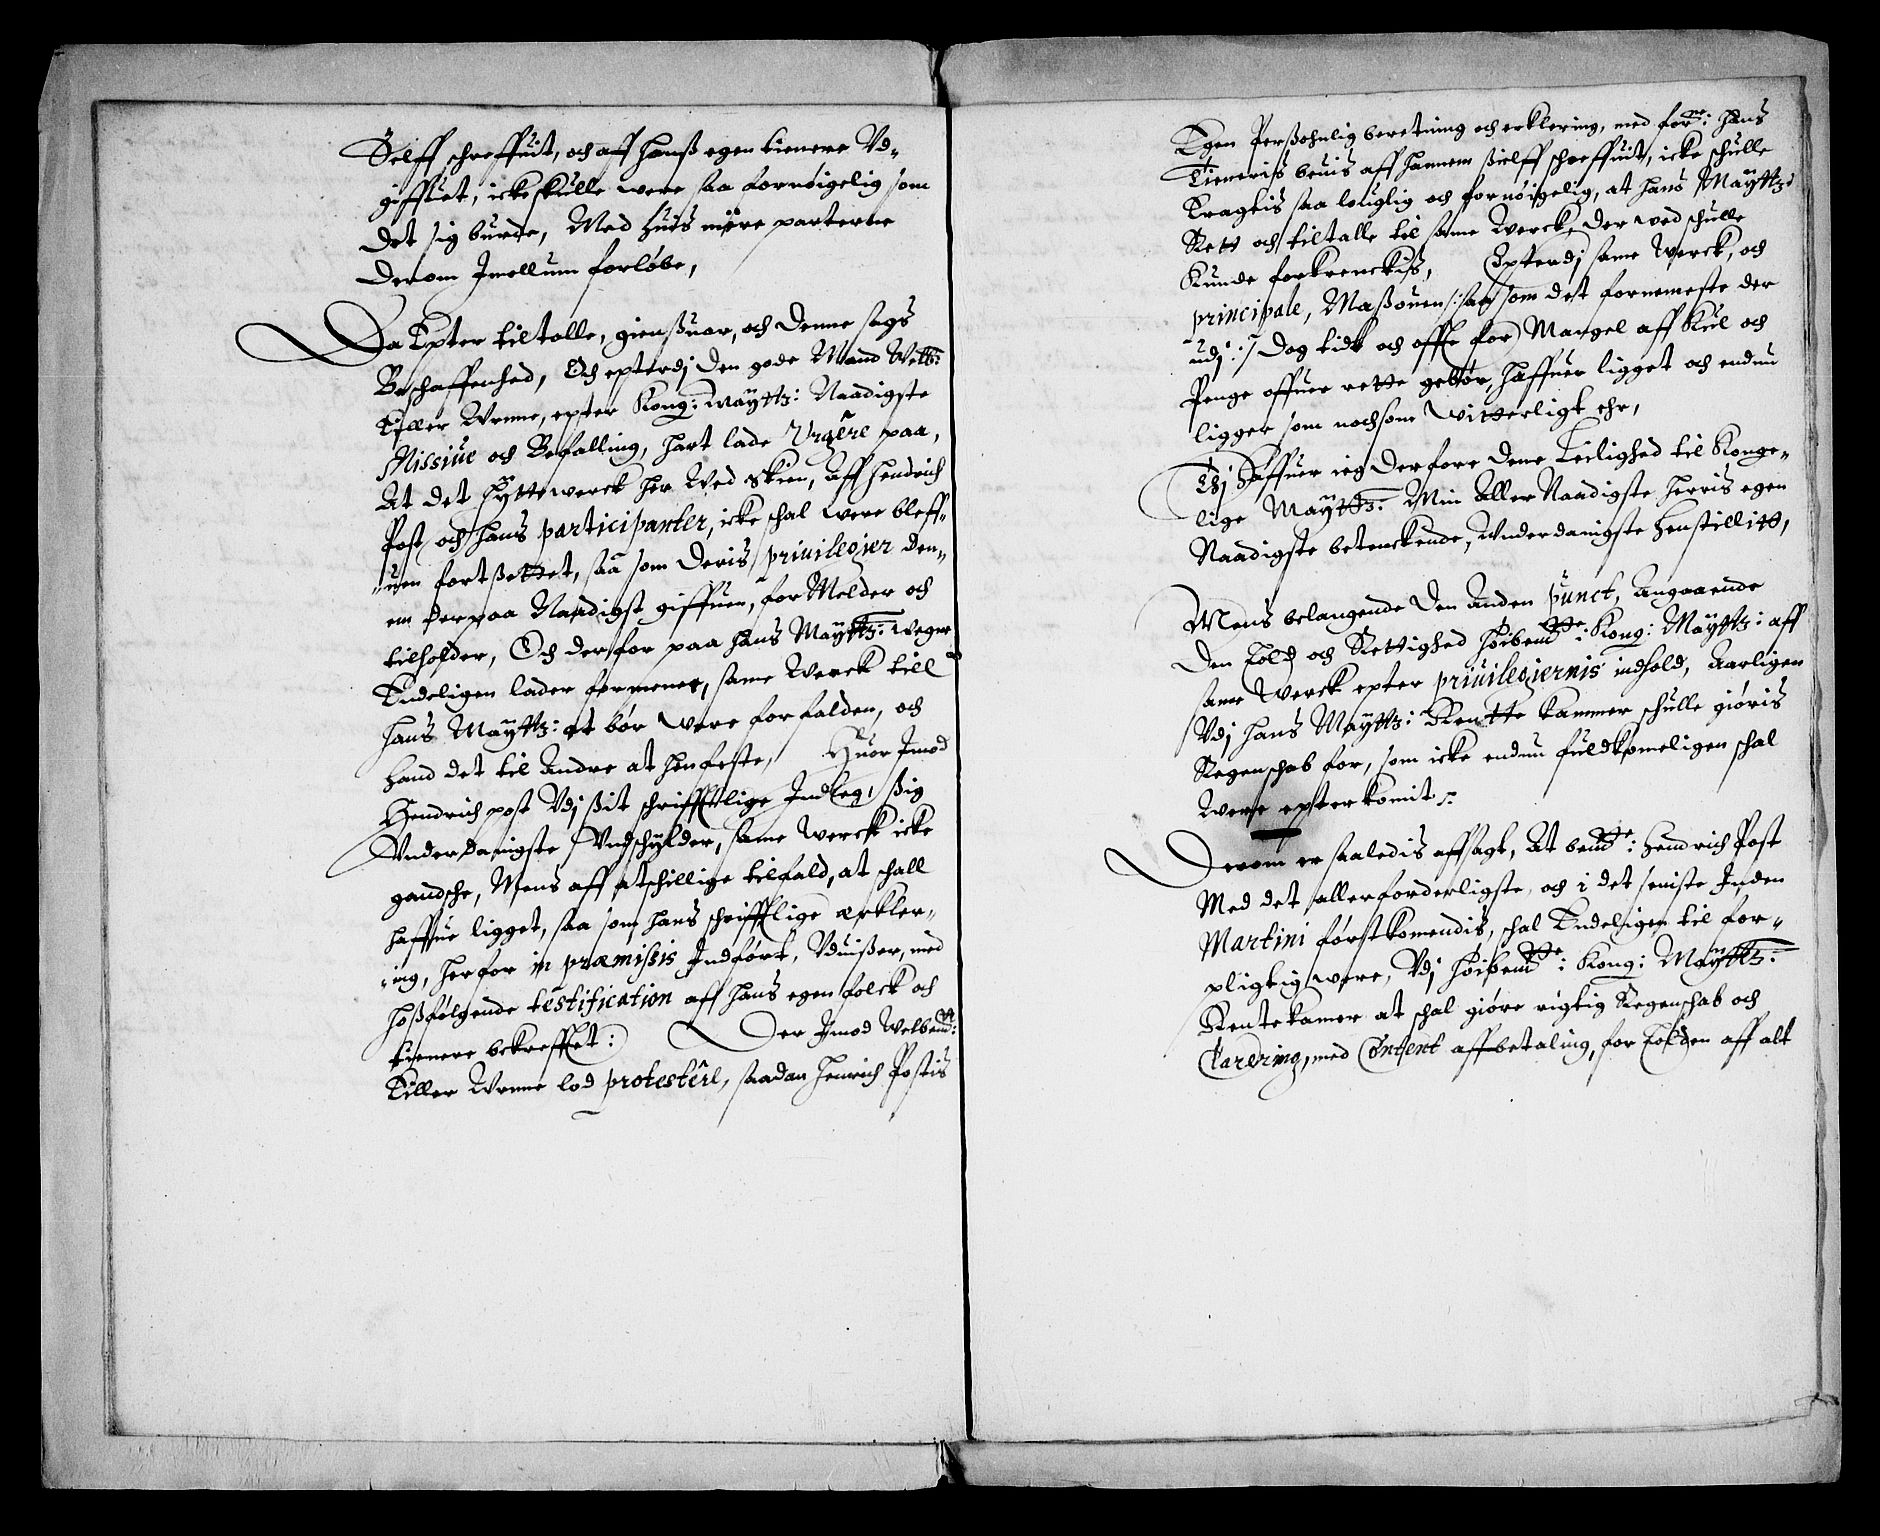 Selff schreffuit, och aff hanß egen tienere Vd-
giffuet, icke skulle were saa fornøigelig som
det sig burde, Med huis mere parterne
derom Jmellum forløbe,
Da Epter tiltalle, giensuar, och denne sags
Beschaffenhed, Och epterdj den gode Mand Welb:
Eiller Vrnne, epter Kong: maytts: Naadigste
Missiue och Befalling, hart lade Vrgēre paa,
At det Hytteverck her Wed Skien, Aff Hendrich
Post och hans participanter, icke schal were bleff-
uen fortßettet, saa som deris priuilegier den-
em derpaa Naadigst giffuen, for Melder och
tilholder, Och derfor paa hans Maytts: wegne
Endeligen lader formene, same Werck till
hans Maytts: at bør were forfalden, och
hand det til Andre at henfeste, Huor Jmod
Hendrich post Vdj sit schrifftlige Indleg, sig
Vnderdanigste Vndschylder, same Werck icke
gandsche, Mens aff atschillige tilfald, at schall
haffue ligget, saa som hans schrifftlige erkler-
ing, herfor in præmissis Indført, Vduißer, med
hosfølgende testification aff hans egen folck och
tienere bekrefftet: Der Jmod Welbemte:
Eiller Vrnne lod protestēre, saadan Henrich Postis
Egen Perßohnlig beretning och erklering, med forne: hans
Tieneris beuis aff hannem sielff schreffuit, icke schulle
Eragtis saa louglig och fornøigelig, at hans Maytts
Rett och tiltalle til same Werck, der wed schulle
Kunde forkrenckis, Epterdj same Werck, och
principale, Maßouen /: saa som det fornemeste der
udj :/ Dog tidt och offte for Mangel aff Kul och
Penge offuer rette gebør, haffuer ligget och endnu
ligger som nochsom witterligt ehr,
Thj Haffuer ieg derfore dene Leilighed til Konge-
lige Maytts: Min Aller Naadigste herris egen
Naadigste betenckende, Vnderdanigste henstillitt,
Mens belangende den Anden punct, Angaaende
den Told och Rettighed høibemte: Kong: Maytts: aff
same Werck epter priuilegiernis indhold, Aarligen
Vdj hans Maytts: Rentte kammer schulle giøris
Regenschab for, som icke endnu fuldkomeligen schal
were epterkomit :
Derom er saaledis affsagt, At bemte: Hendrich Post
Med det allerforderligste, och i det seniste Jnden
Martini førstkomendis, schal Endeligen til for-
pligtig were, Vdj høibemte: Kong: Maytts:
Rentekamer at schal giøre rigtig Regenschab och
Clarering, med Content affbetaling, for Tolden aff alt